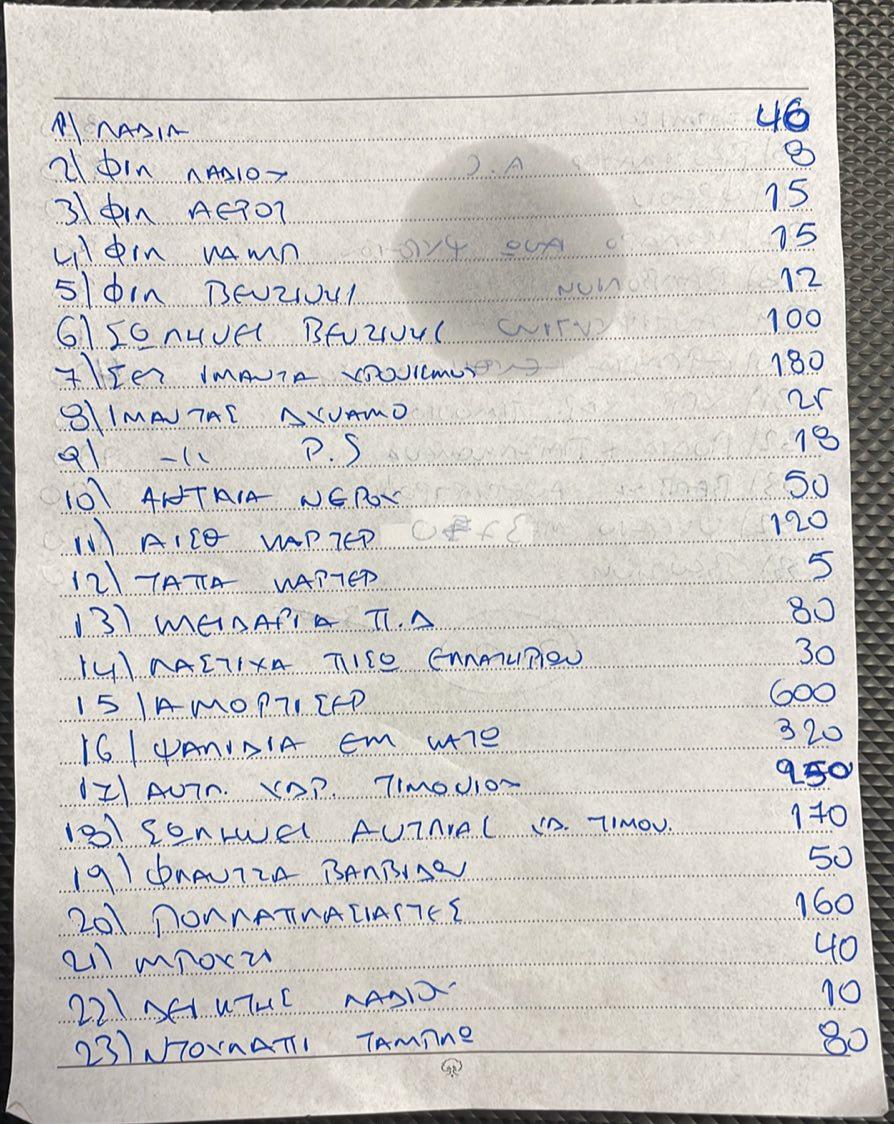 1) ΛΑΔΙΑ 46
2) ΦΙΛ ΛΑΔΙΟΥ 8
3) ΦΙΛ ΑΕΡΟΣ 15
4) ΦΙΛ ΚΑΜΠ 15
5) ΦΙΛ ΒΕΝΖΙΝΗΣ 12
6) ΣΩΛΗΝΕΣ ΒΕΝΖΙΝΗΣ 100
7) ΣΕΤ ΙΜΑΝΤΑ ΧΡΟΝΙΣΜΟΥ 180
8) ΙΜΑΝΤΑΣ ΔΥΝΑΜΟ 25
9) -||- P.S 18
10) ΑΝΤΛΙΑ ΝΕΡΟΥ 50
11) ΑΙΣΘ ΚΑΡΤΕΡ 120
12) ΤΑΠΑ ΚΑΡΤΕΡ 5
13) ΜΕΙΔΑΡΙΑ Π.Δ 80
14) ΛΑΣΤΙΧΑ ΠΙΣΩ ΕΛΛΑΤΗΡΙΟΥ 30
15) ΑΜΟΡΤΙΣΕΡ 600
16) ΨΑΛΙΔΙΑ ΕΜ ΚΑΤΩ 320
17) ΑΝΤΛ. ΥΔΡ. ΤΙΜΟΝΙΟΥ 250
18) ΣΩΛΗΝΕΣ ΑΝΤΛΙΑΣ ΥΔ. ΤΙΜΟΝ. 170
19) ΦΛΑΝΤΖΑ ΒΑΛΒΙΔΩΝ 50
20) ΠΟΛΛΑΠΛΑΣΙΑΣΤΕΣ 160
21) ΜΠΟΥΖΙ 40
22) ΔΕΙΚΤΗΣ ΛΑΔΙΟΥ 10
23) ΝΤΟΥΛΑΠΙ ΤΑΜΠΛΩ 80